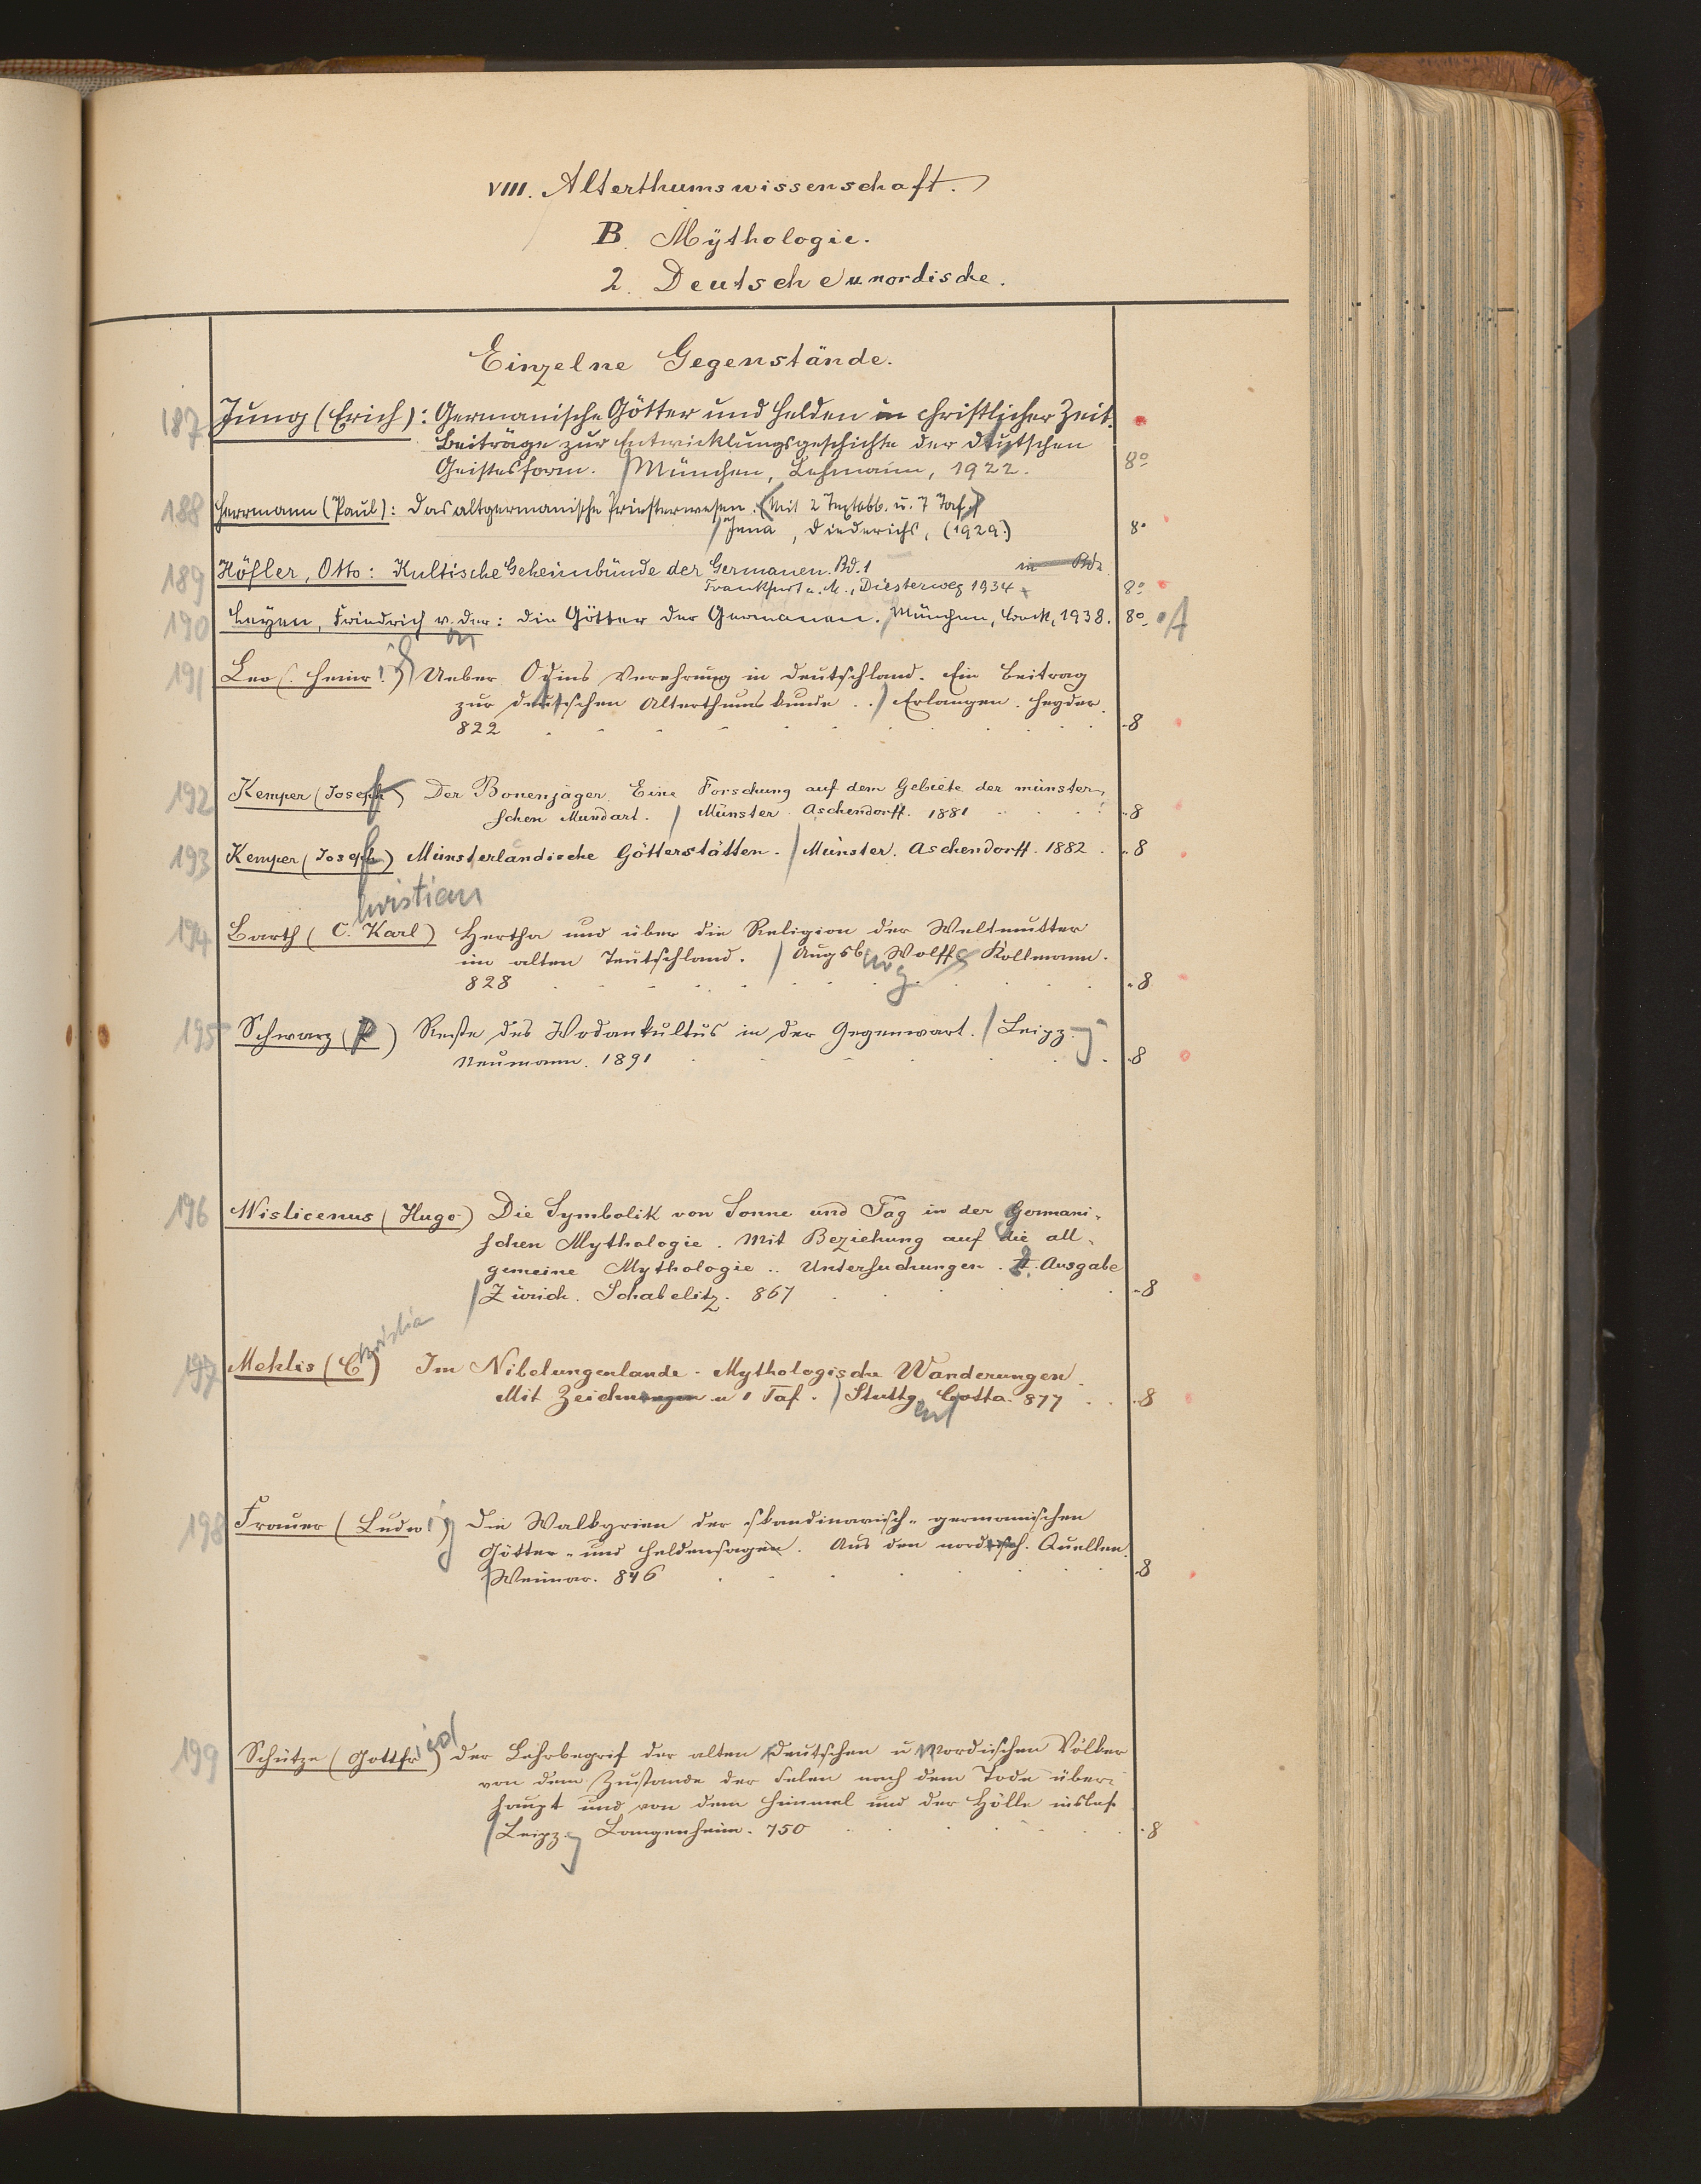 VIII. Alterthumswissenschaft.
B. Mÿthologie.
2. Deutsche u. nordische.
Einzelne Gegenstände.
187 Jung (Erich): Germanische Götter und Helden in christlicher Zeit.
Beiträge zur Entwicklungsgeschichte der deutschen
Geistesform. / München, Lehmann, 1922. 8°
188 Herrmann (Paul): Das altgermanische Priesterwesen. (Mit 2 Textabb. u. 7 Taf.)
/ Jena, Diederichs, (1929.) 8°
189 Höfler, Otto: Kultische Geheimbünde der Germanen. Bd. 1 in Bde
Frankfurt a. M., Diesterweg 1934 8°
190 Leyen, Friedrich v. der: Die Götter der Germanen. / München, Beck, 1938. 8°
on
191 Leo (Heinrich) Ueber Odins Verehrung in Deutschland. Ein Beitrag
zur deutschen Alterthumskunde . . / Erlangen. Heyder.
822 8
192 Kemper (Josef) Der Bonenjäger. Eine Forschung auf dem Gebiete der münster-
schen Mundart. / Münster. Aschendorff. 1881 8
193 Kemper (Josef) Münsterländische Götterstätten. / Münster. Aschendorff. 1882. 8
hristian
194 Barth (C. Karl) Hertha und über die Religion der Weltmutter
im alten Teutschland. / Augsburg Wolff Kollmann.
828 8
195 Schwarz (P) Reste des Wodankultus in der Gegenwart. / Leipzg
Neumann. 1891 8
196 Wislicenus (Hugo) Die Symbolik von Sonne und Tag in der germani-
schen Mythologie. Mit Beziehung auf die all-
gemeine Mythologie .. Untersuchungen. 2. Ausgabe
/ Zürich. Schabelitz. 867 8
197 Mehlis (Christia) Im Nibelungenlande. Mythologische Wanderungen.
Mit Zeichnungen u 1 Taf. / Stuttg. Cotta. 877 8
198 Frauer (Ludwig) Die Walkyrien der skandinavisch-germanischen
Götter- und Heldensagen. Aus den nordisch. Quellen.
/ Weimar. 846 8
199 Schütze (Gottfried) Der Lehrbegrif der alten deutschen u nordischen Völker
von dem Zustande der Selen nach dem Tode über-
haupt und von dem Himmel und der Hölle insbes.
/ Leipzg Langenheim. 750 8